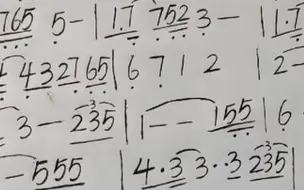 765 5 - | 1.7 752 3 - | 1.7
4 43 27 65 | 6 7 1 2 | 2 -
3 - 235 | 1 - - 155 | 6
- 555 | 4·3 3·3 235 |